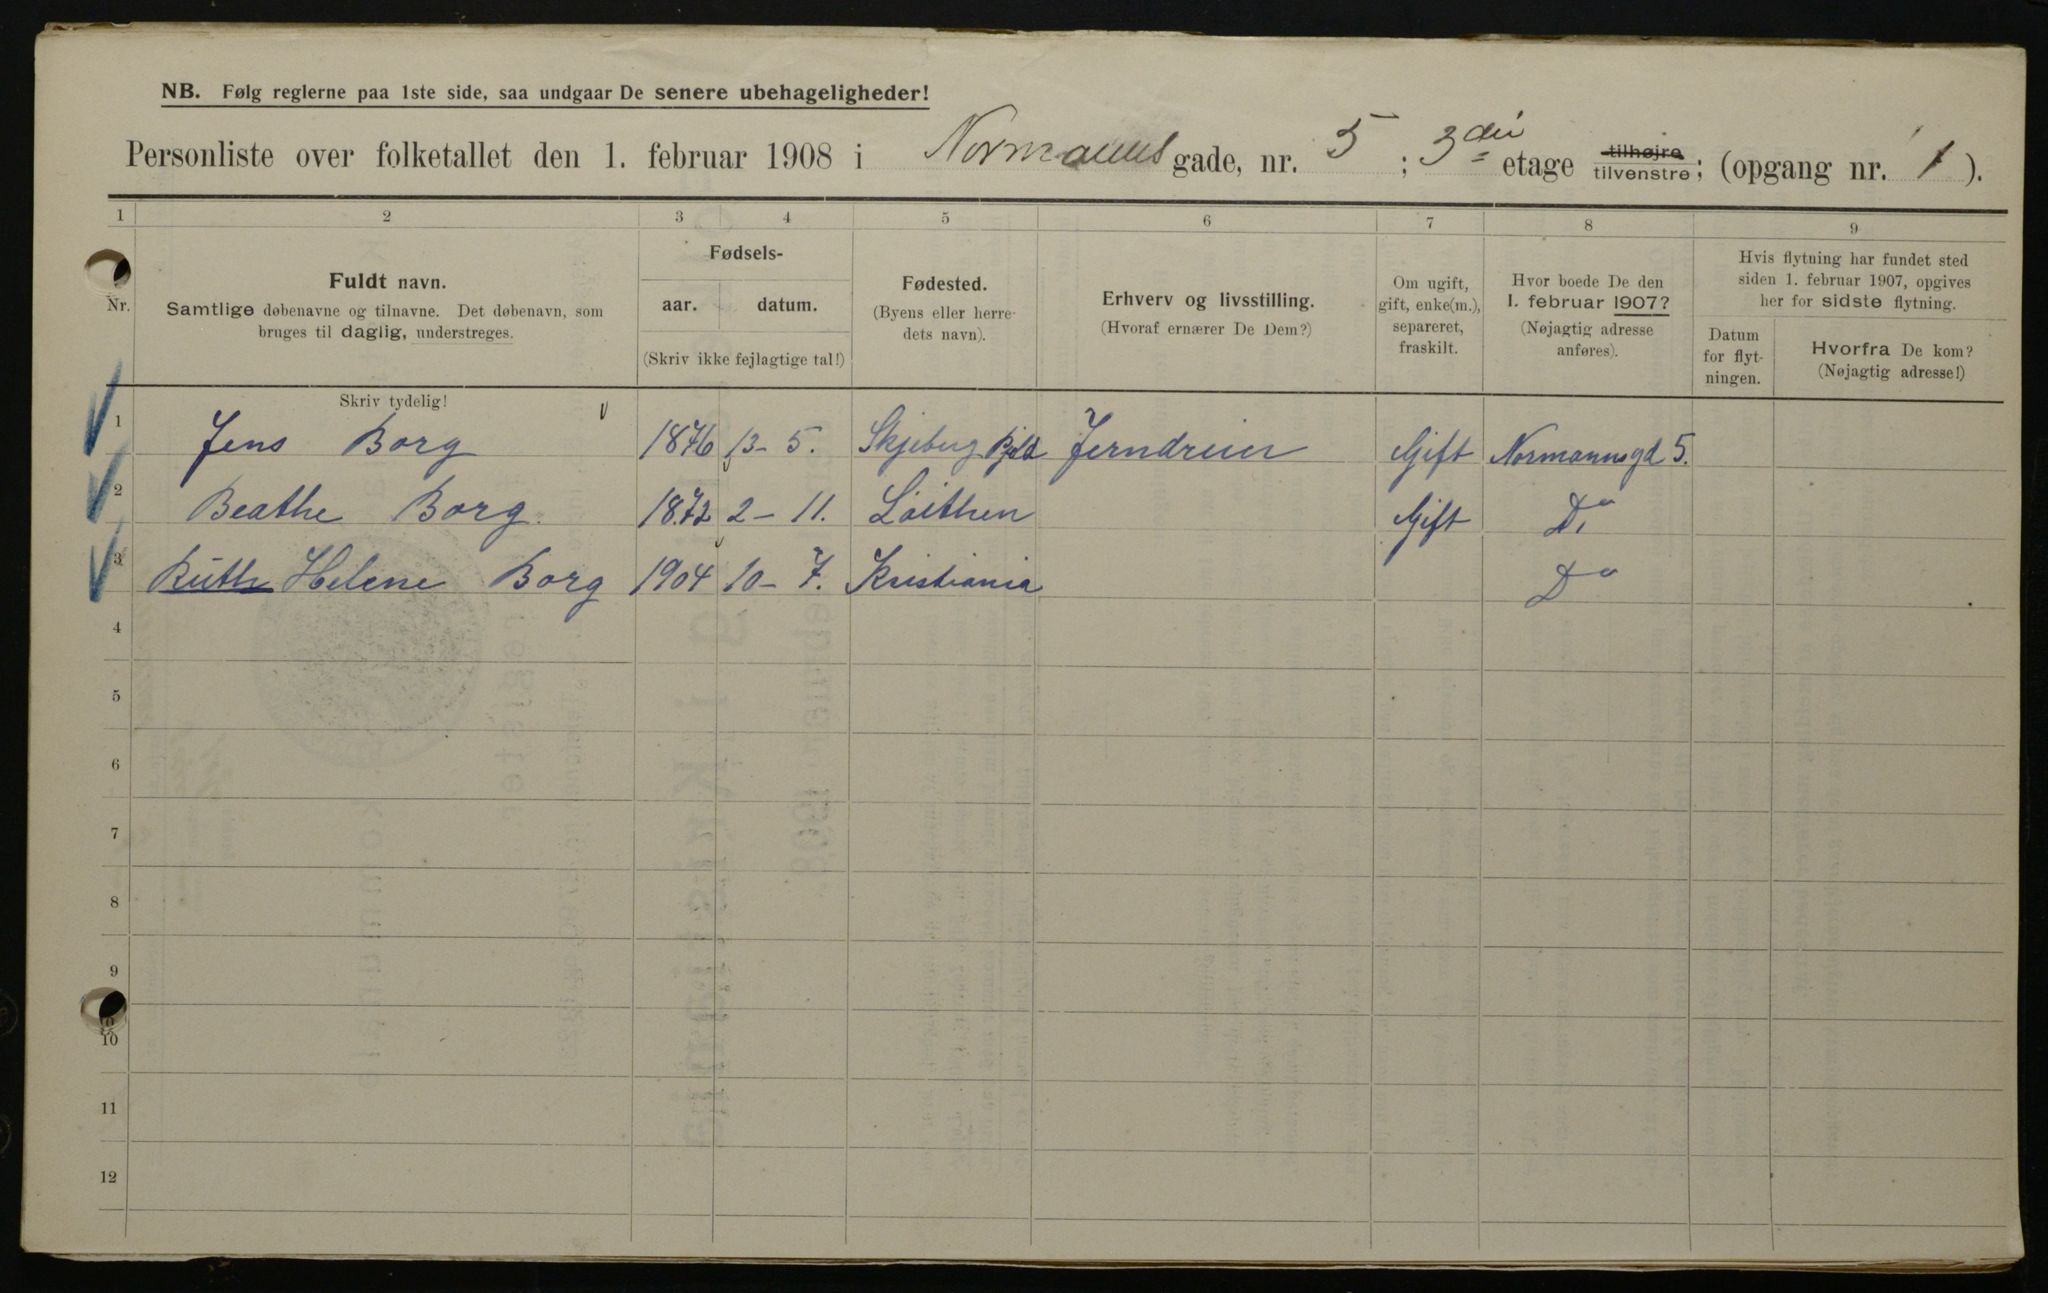 NB. Følg reglerne paa 1ste side, saa undgaar De senere ubehageligheder!
Personliste over folketallet den 1. februar 1908 i Normanns gade, nr. 5 ; 3die etage tilhøjre tilvenstre; (opgang nr. 1 ).
1 2 3 4 5 6 7 8 9
Nr.
Fuldt navn.
Samtlige døbenavne og tilnavne. Det døbenavn, som
bruges til daglig, understreges.
Skriv tydelig!
Fødsels-
aar. datum.
(Skriv ikke fejlagtige tal!)
Fødested.
(Byens eller herre-
dets navn).
Erhverv og livsstilling.
(Hvoraf ernærer De Dem?)
Om ugift,
gift, enke(m.),
separeret,
fraskilt.
Hvor boede De den
1. februar 1907?
(Nøjagtig adresse
anføres).
Hvis flytning har fundet sted
siden 1. februar 1907, opgives
her for sidste flytning.
Datum
for flyt-
ningen.
Hvorfra De kom?
(Nøjagtig adresse!)
1 Jens Borg 1876 13-5. Skjeberg Jerndreier Gift Normannsgd 5.
2 Beathe Borg. 1872 2-11. Løithen Gift Do
3 Ruth Helene Borg 1904 10-7. Kristiania Do
4
5
6
7
8
9
10
11
12